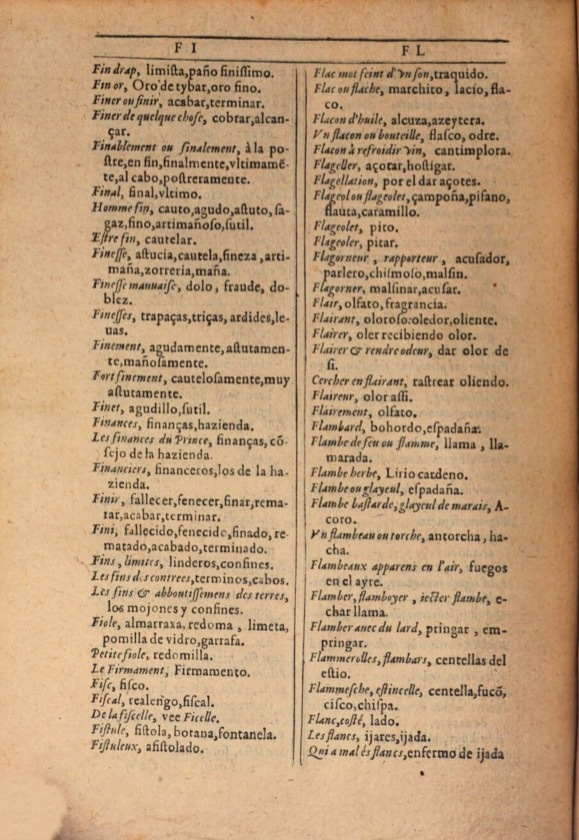 F I
Fin drap, limiſta,paño finiſſimo.
Fin or, Oro de tybar,oro fino.
Finer ou finir, acabar,terminar.
Finer de quelque choſe, cobrar,alcan-
çar.
Finablement ou finalement, à la po-
ſtre,en fin,finalmente,vltimamē-
te,al cabo,poſtreramente.
Final, final,vltimo.
Homme fin, cauto,agudo,aſtuto,ſa-
gaz,fino,artimañoſo,ſutil.
Eſtre fin, cautelar.
Fineſſe, aſtucia,cautela,fineza,arti-
maña,zorreria,maña.
Fineſſe mauuaiſe, dolo, fraude, do-
blez.
Fineſſes, trapaças,triças, ardides,le-
uas.
Finement, agudamente,aſtutamen-
te,mañoſamente.
Fort finement, cauteloſamente,muy
aſtutamente.
Finet, agudillo,ſutil.
Finances, finanças,hazienda.
Les finances du Prince, finanças,cō-
ſejo de la hazienda.
Financiers, financeros,los de la ha-
zienda.
Finir, fallecer,fenecer,finar,rema-
tar,acabar,terminar.
Fini, fallecido,fenecido,finado, re-
matado,acabado,terminado.
Fins, limites, linderos,confines.
Les fins des contrees,terminos,cabos.
Les fins & abboutiſſemens des terres,
los mojones y confines.
Fiole, almarraxa, redoma, limeta,
pomilla de vidro,garrafa.
Petite fiole, redomilla.
Le Firmament, Firmamento.
Fiſc, fiſco.
Fiſcal, realengo,fiſcal.
De la fiſcelle, vee Ficelle.
Fiſtule, fiſtola, botana,fontanela.
Fiſtuleux, afiſtolado.
F L
Flac mot feint d'vn ſon,traquido.
Flac ou flache, marchito, lacio, fla-
co.
Flacon d'huile, alcuza,azeytera.
Vn flacon ou bouteille, flaſco, odre.
Flacon à refroidir vin, cantimplora.
Flageller, açotar,hoſtigar.
Flagellation, por el dar açotes.
Flageol ou flageolet, çampoña,pifano,
flauta,caramillo.
Flageolet, pito.
Flageoler, pitar.
Flagorneur, rapporteur, acuſador,
parlero,chiſmoſo,malſin.
Flagorner, malſinar,acuſar.
Flair, olfato, fragrancia.
Flairant, oloroſo:oledor,oliente.
Flairer, oler recibiendo olor.
Flairer & rendre odeur, dar olor de
ſi.
Cercher en flairant, raſtrear oliendo.
Flaireur, olor aſſi.
Flairement, olfato.
Flambard, bohordo,eſpadaña.
Flambe de feu ou flamme, llama, lla-
marada.
Flambe herbe, Lirio cardeno.
Flambe ou glayeul, eſpadaña.
Flambe baſtarde,glayeul de marais, A-
coro.
Vn flambeau ou torche, antorcha, ha-
cha.
Flambeaux apparens en l'air, fuegos
en el ayre.
Flamber, flamboyer, ietter flambe, e-
char llama.
Flamber auec du lard, pringar, em-
pringar.
Flammerolles, flambars, centellas del
eſtio.
Flammeſche, eſtincelle, centella,fuco,
ciſco,chiſpa.
Flanc,coſté, lado.
Les flancs, ijares,ijada.
Qui a mal és flancs,enfermo de ijada